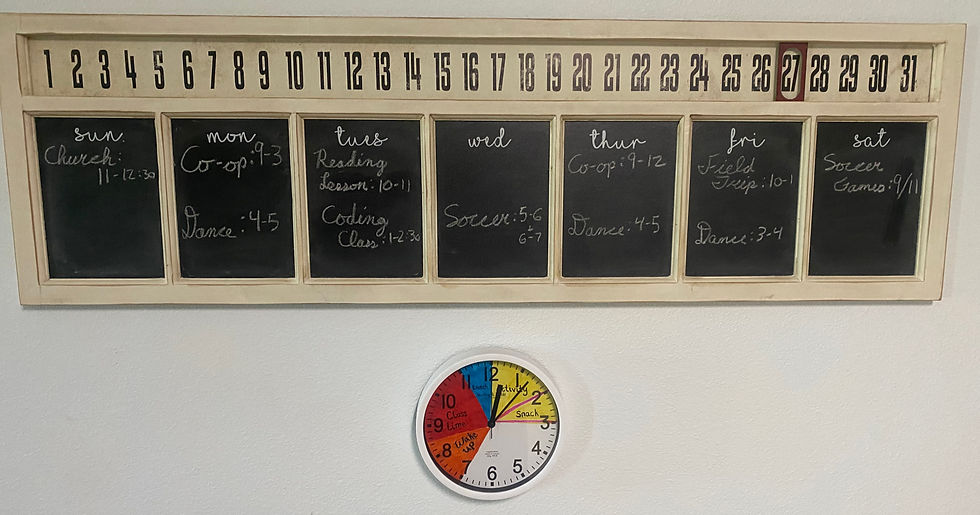 1 2 3 4 5 6 7 8 9 10 11 12 13 14 15 16 17 18 19 20 21 22 23 24 25 26 27 28 29 30 31
sun.
Church:
11-12:30
mon
Co-op: 9-3
Dance: 4-5
tues
Reading
Lesson: 10-11
Coding
Class: 1-2:30
wed
Soccer: 5-6
6-7
thur
Co-op: 9-12
Dance: 4-5
fri
Field
Trip: 10-1
Dance: 3-4
sat
Soccer
Games: 9/11
12
1
2
3
4
5
6
7
8
9
10
11
Activity
Snack
Class
time
Wake
up